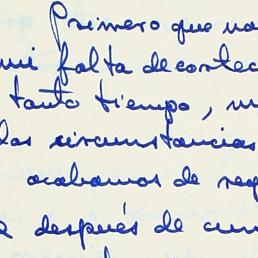 Primero que na
mi falta de cortec
tanto tiempo, m
las circunstancias
acabamos de reg
después de cum